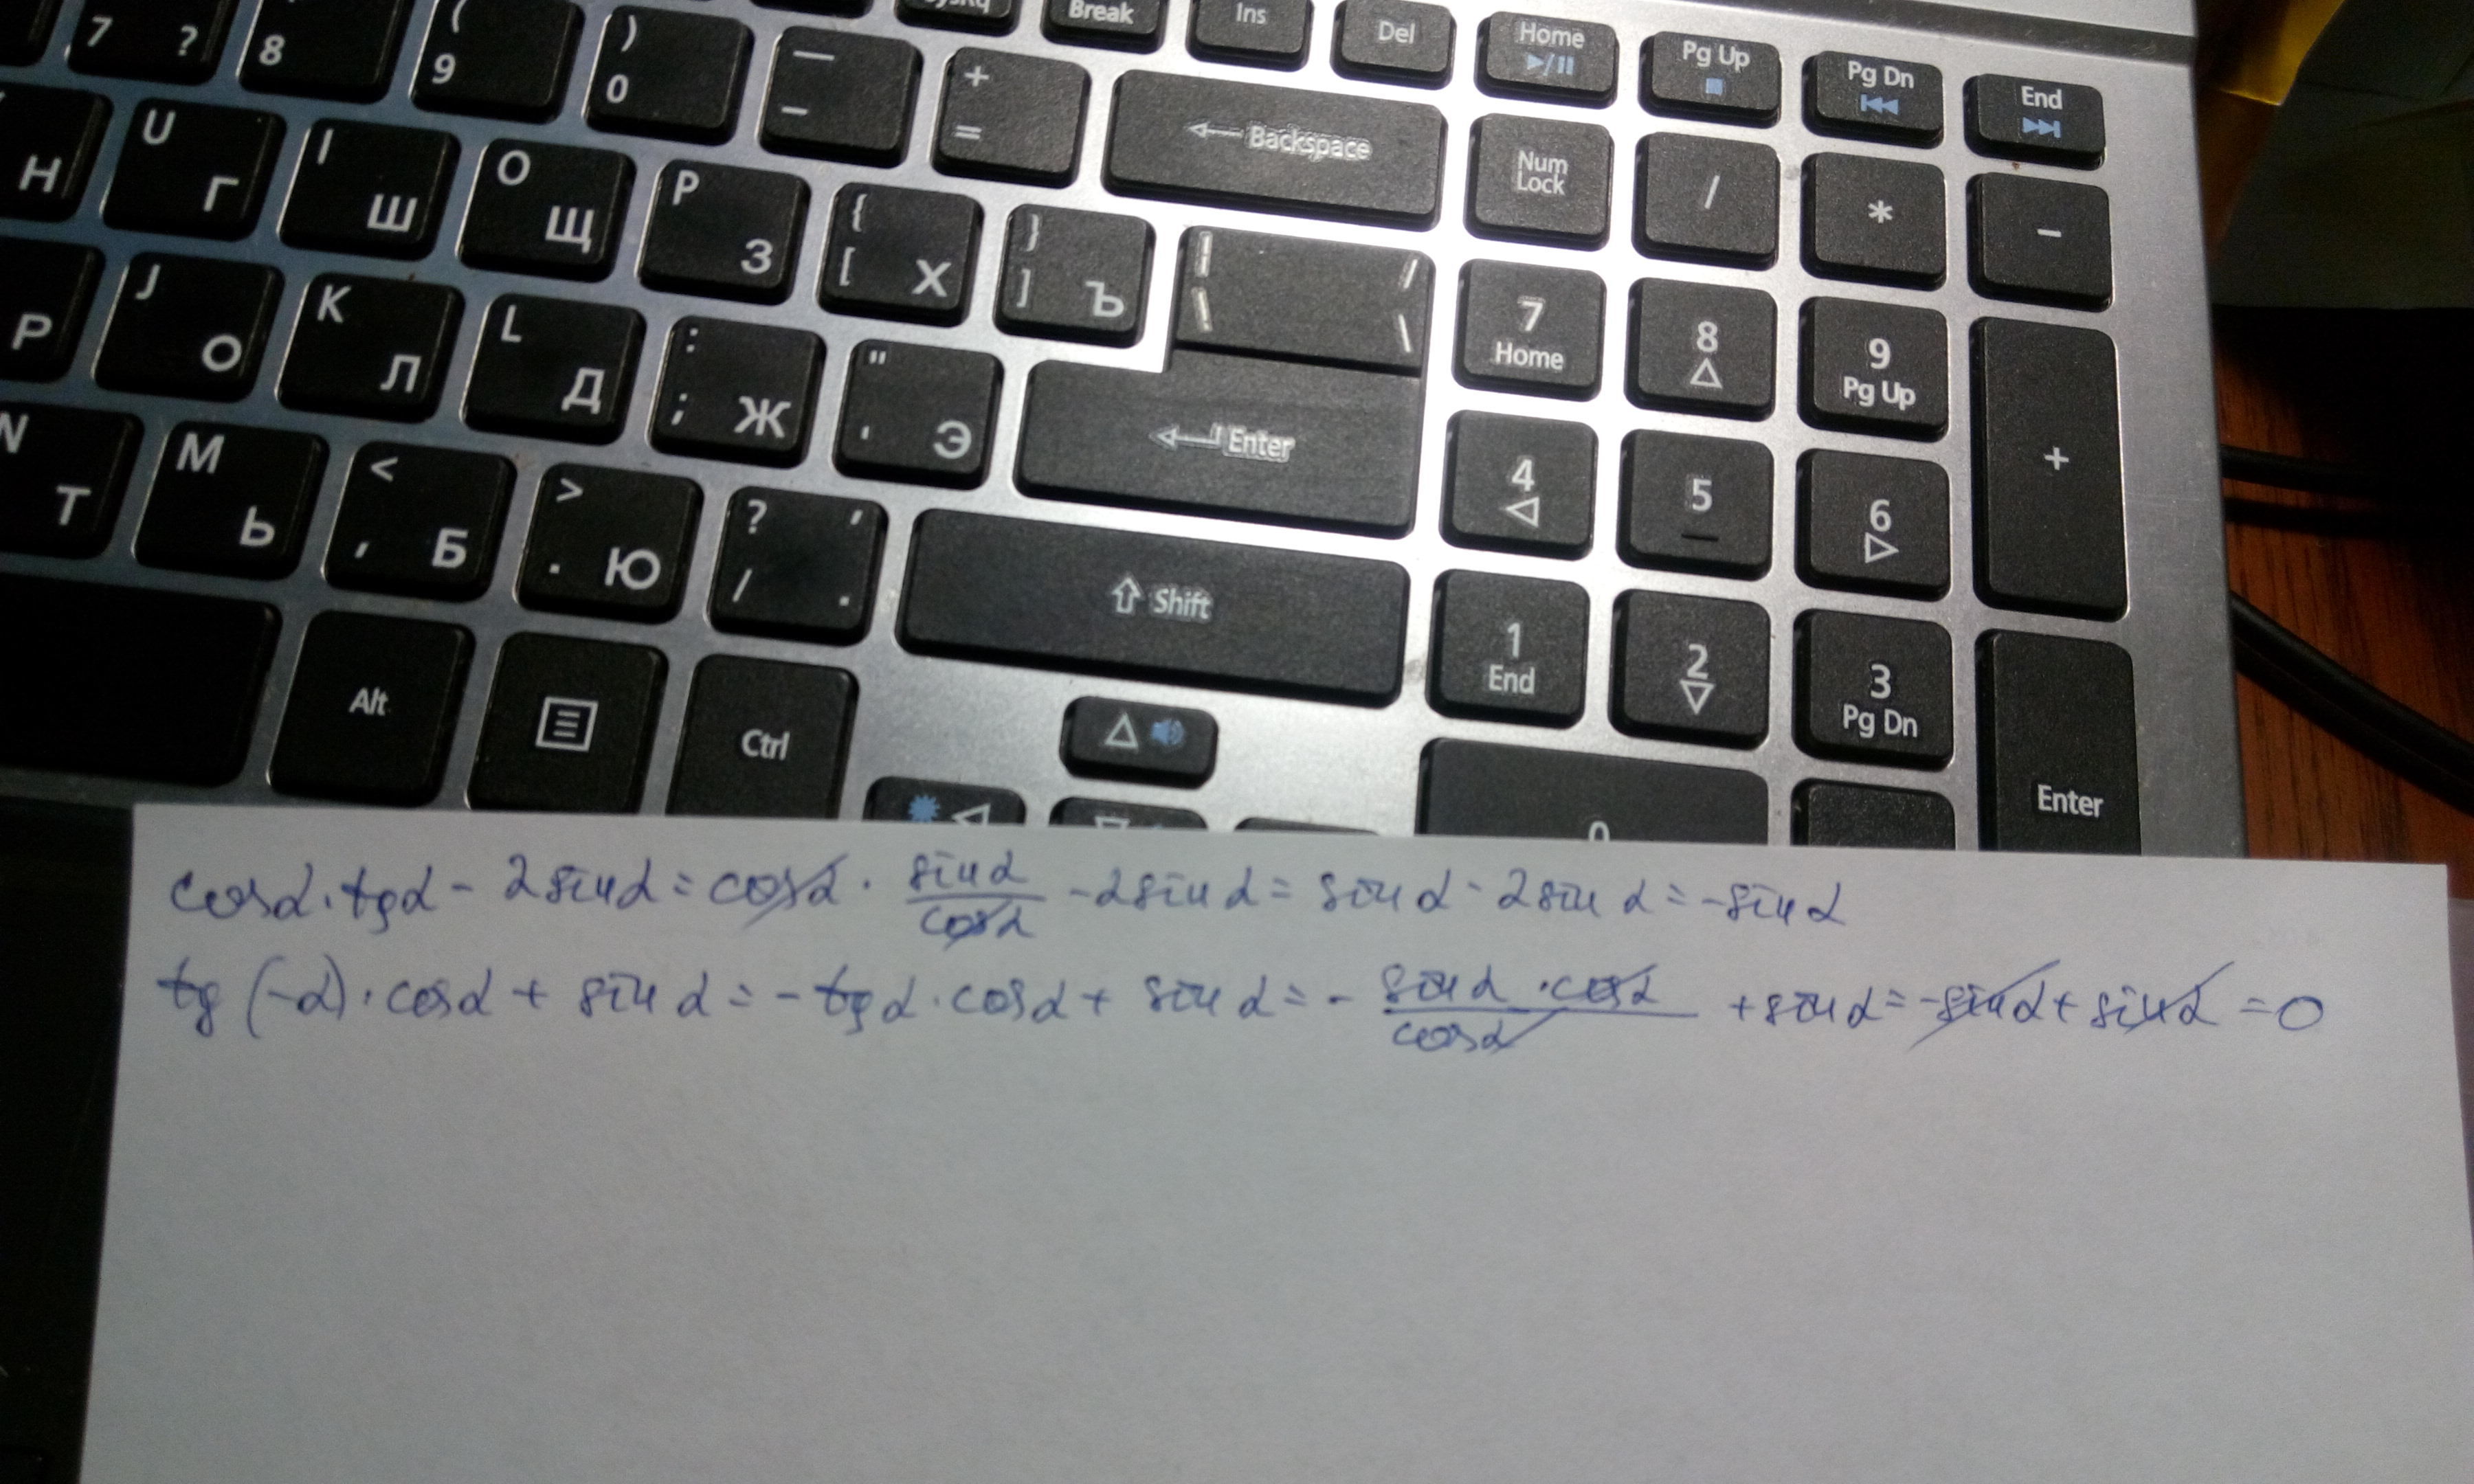 SysRq Break Ins Del Home Pg Up Pg Dn End
7 ? 8 ( 9 ) 0 — - + = ← Backspace Num Lock / * -
Н U Г I Ш O Щ P З { [ Х } ] Ъ | \ / \ 7 Home 8 9 Pg Up +
Р J О K Л L Д : ; Ж " ' Э ← Enter 4 5 6
N Т M Ь < , Б > . Ю ? / , . Shift 1 End 2 3 Pg Dn Enter
Alt Ctrl 0
cosα · tgα - 2sinα = cosα · sinα/cosα - 2sinα = sinα - 2sinα = -sinα
tg(-α) · cosα + sinα = -tgα · cosα + sinα = - sinα · cosα/cosα + sinα = -sinα + sinα = 0